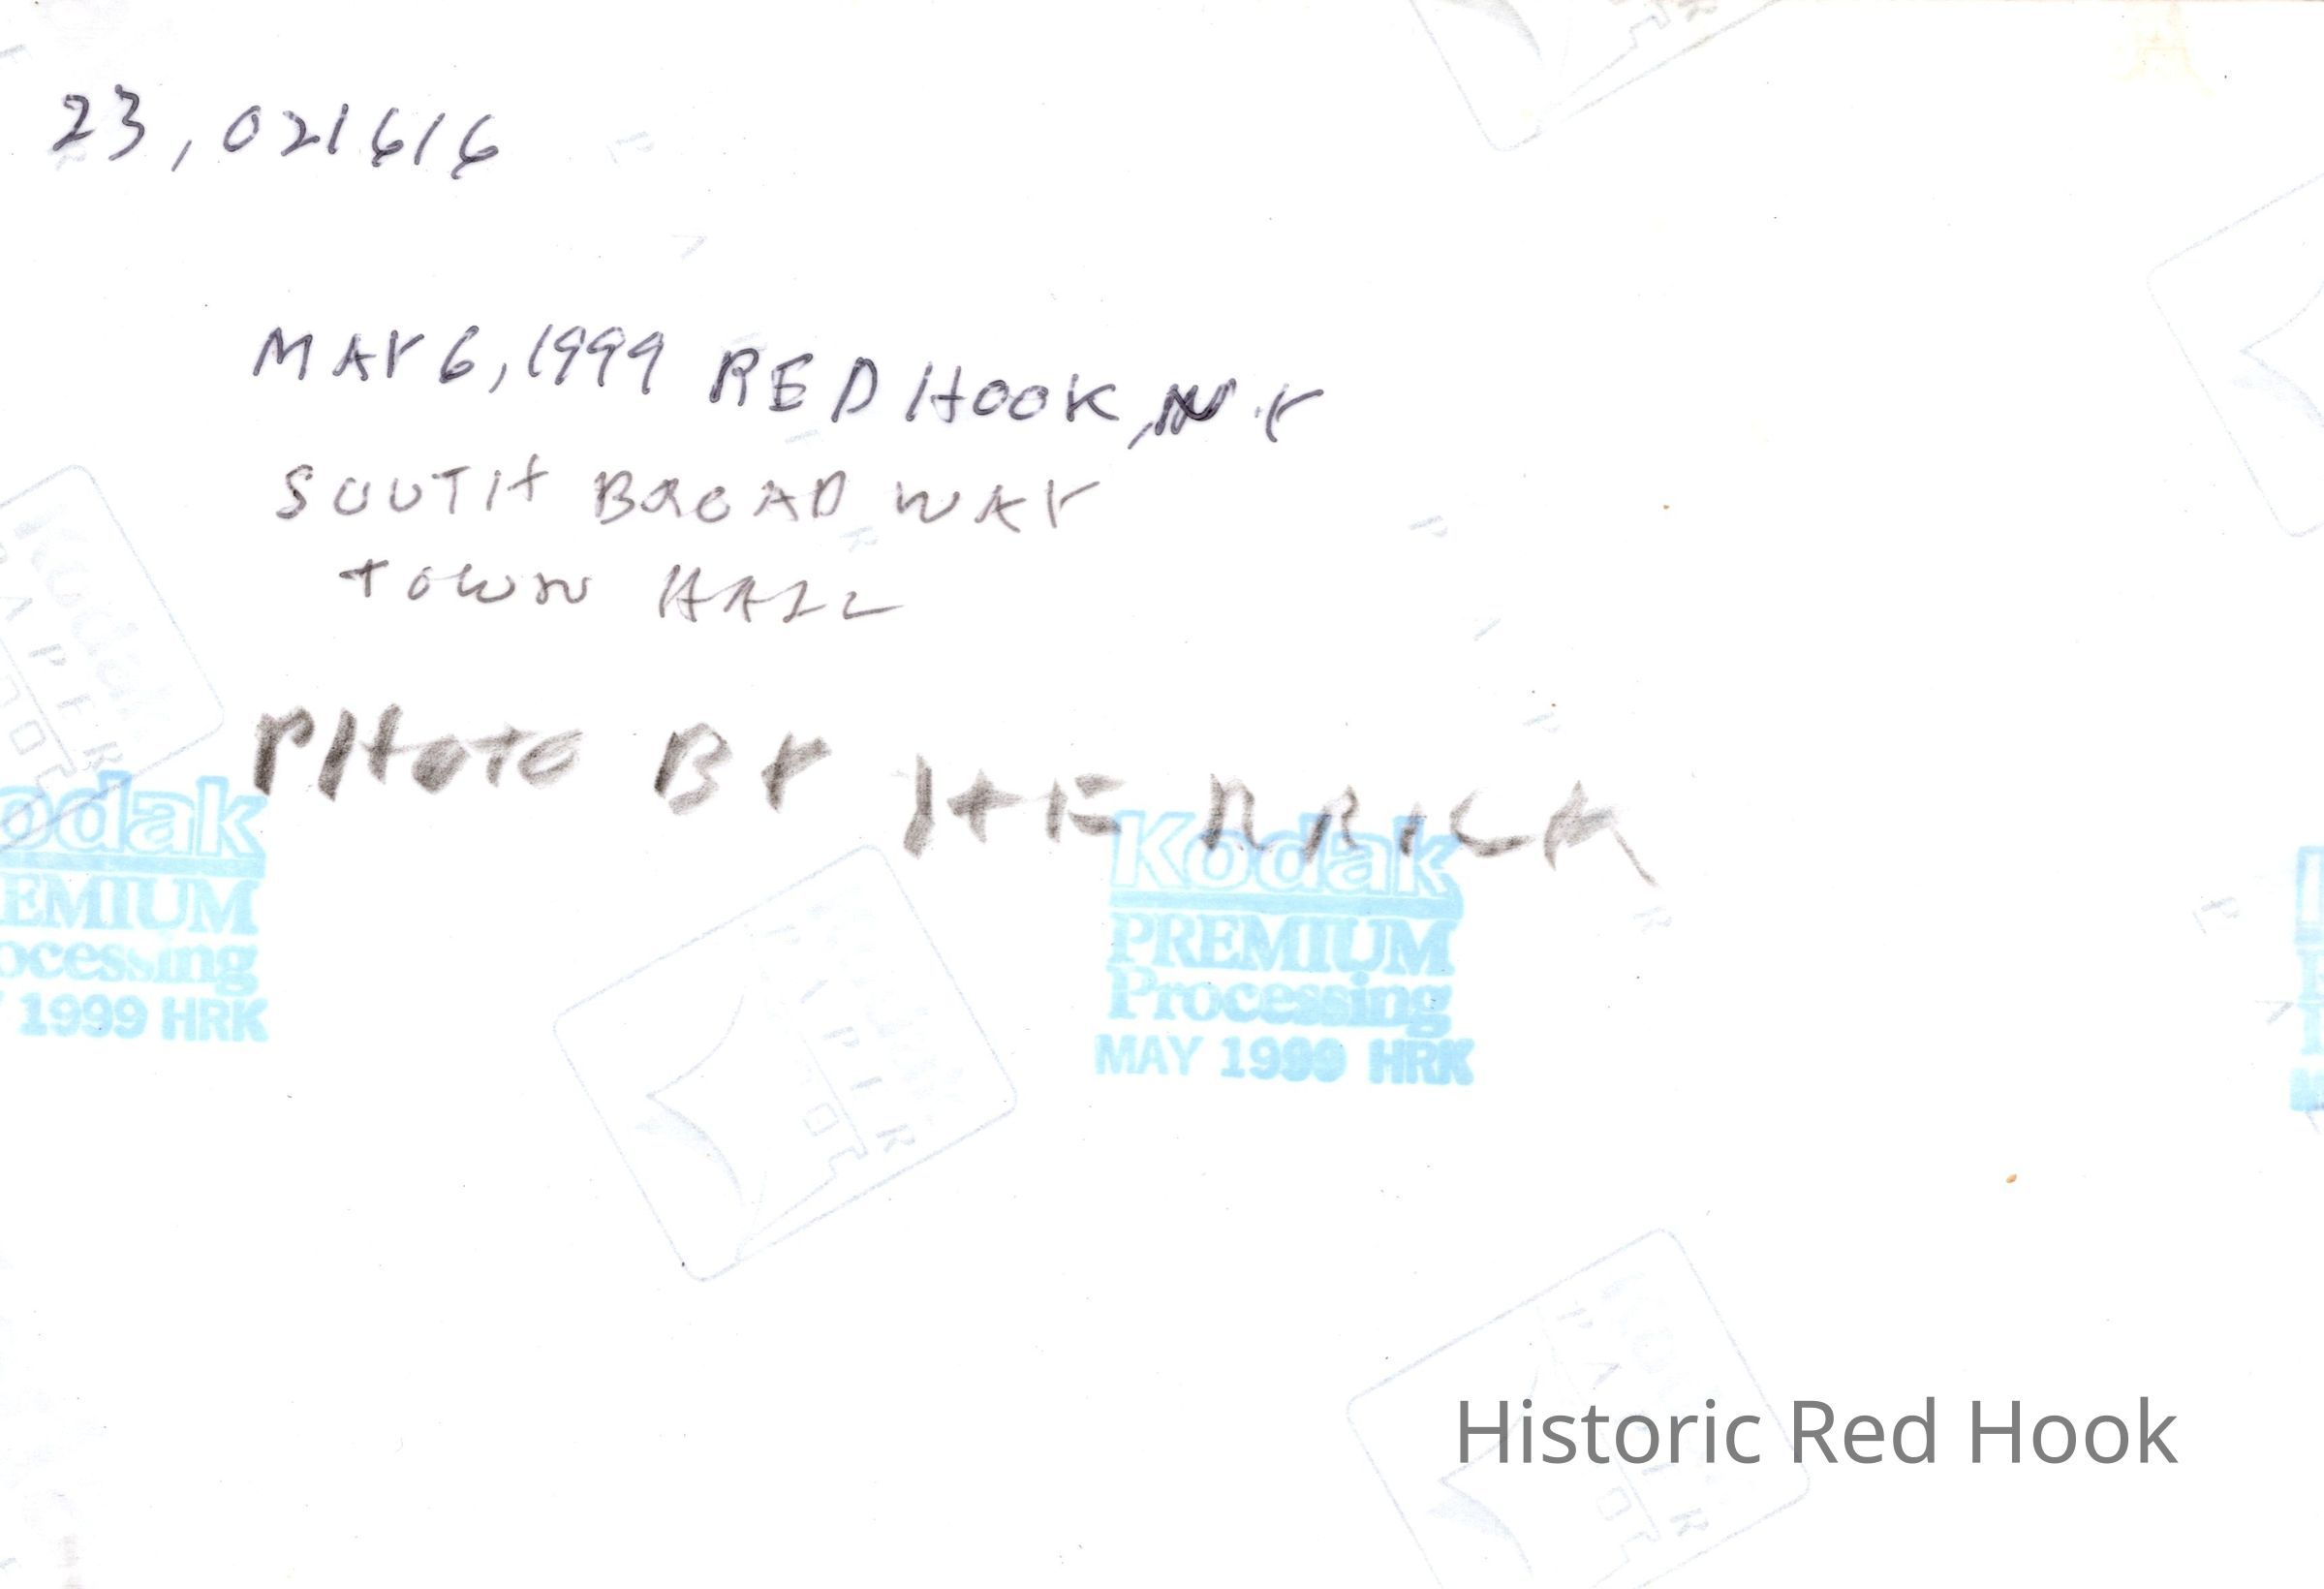 23,021616
MAY 6, 1999 RED HOOK, N.Y
SOUTH BROADWAY
TOWN HALL
PHOTO BY HERRICK
Kodak
PAPER
odak
EMIUM
ocessing
1999 HRK
Kodak
PREMIUM
Processing
MAY 1999 HRK
PAPIR
PAPIR
Historic Red Hook